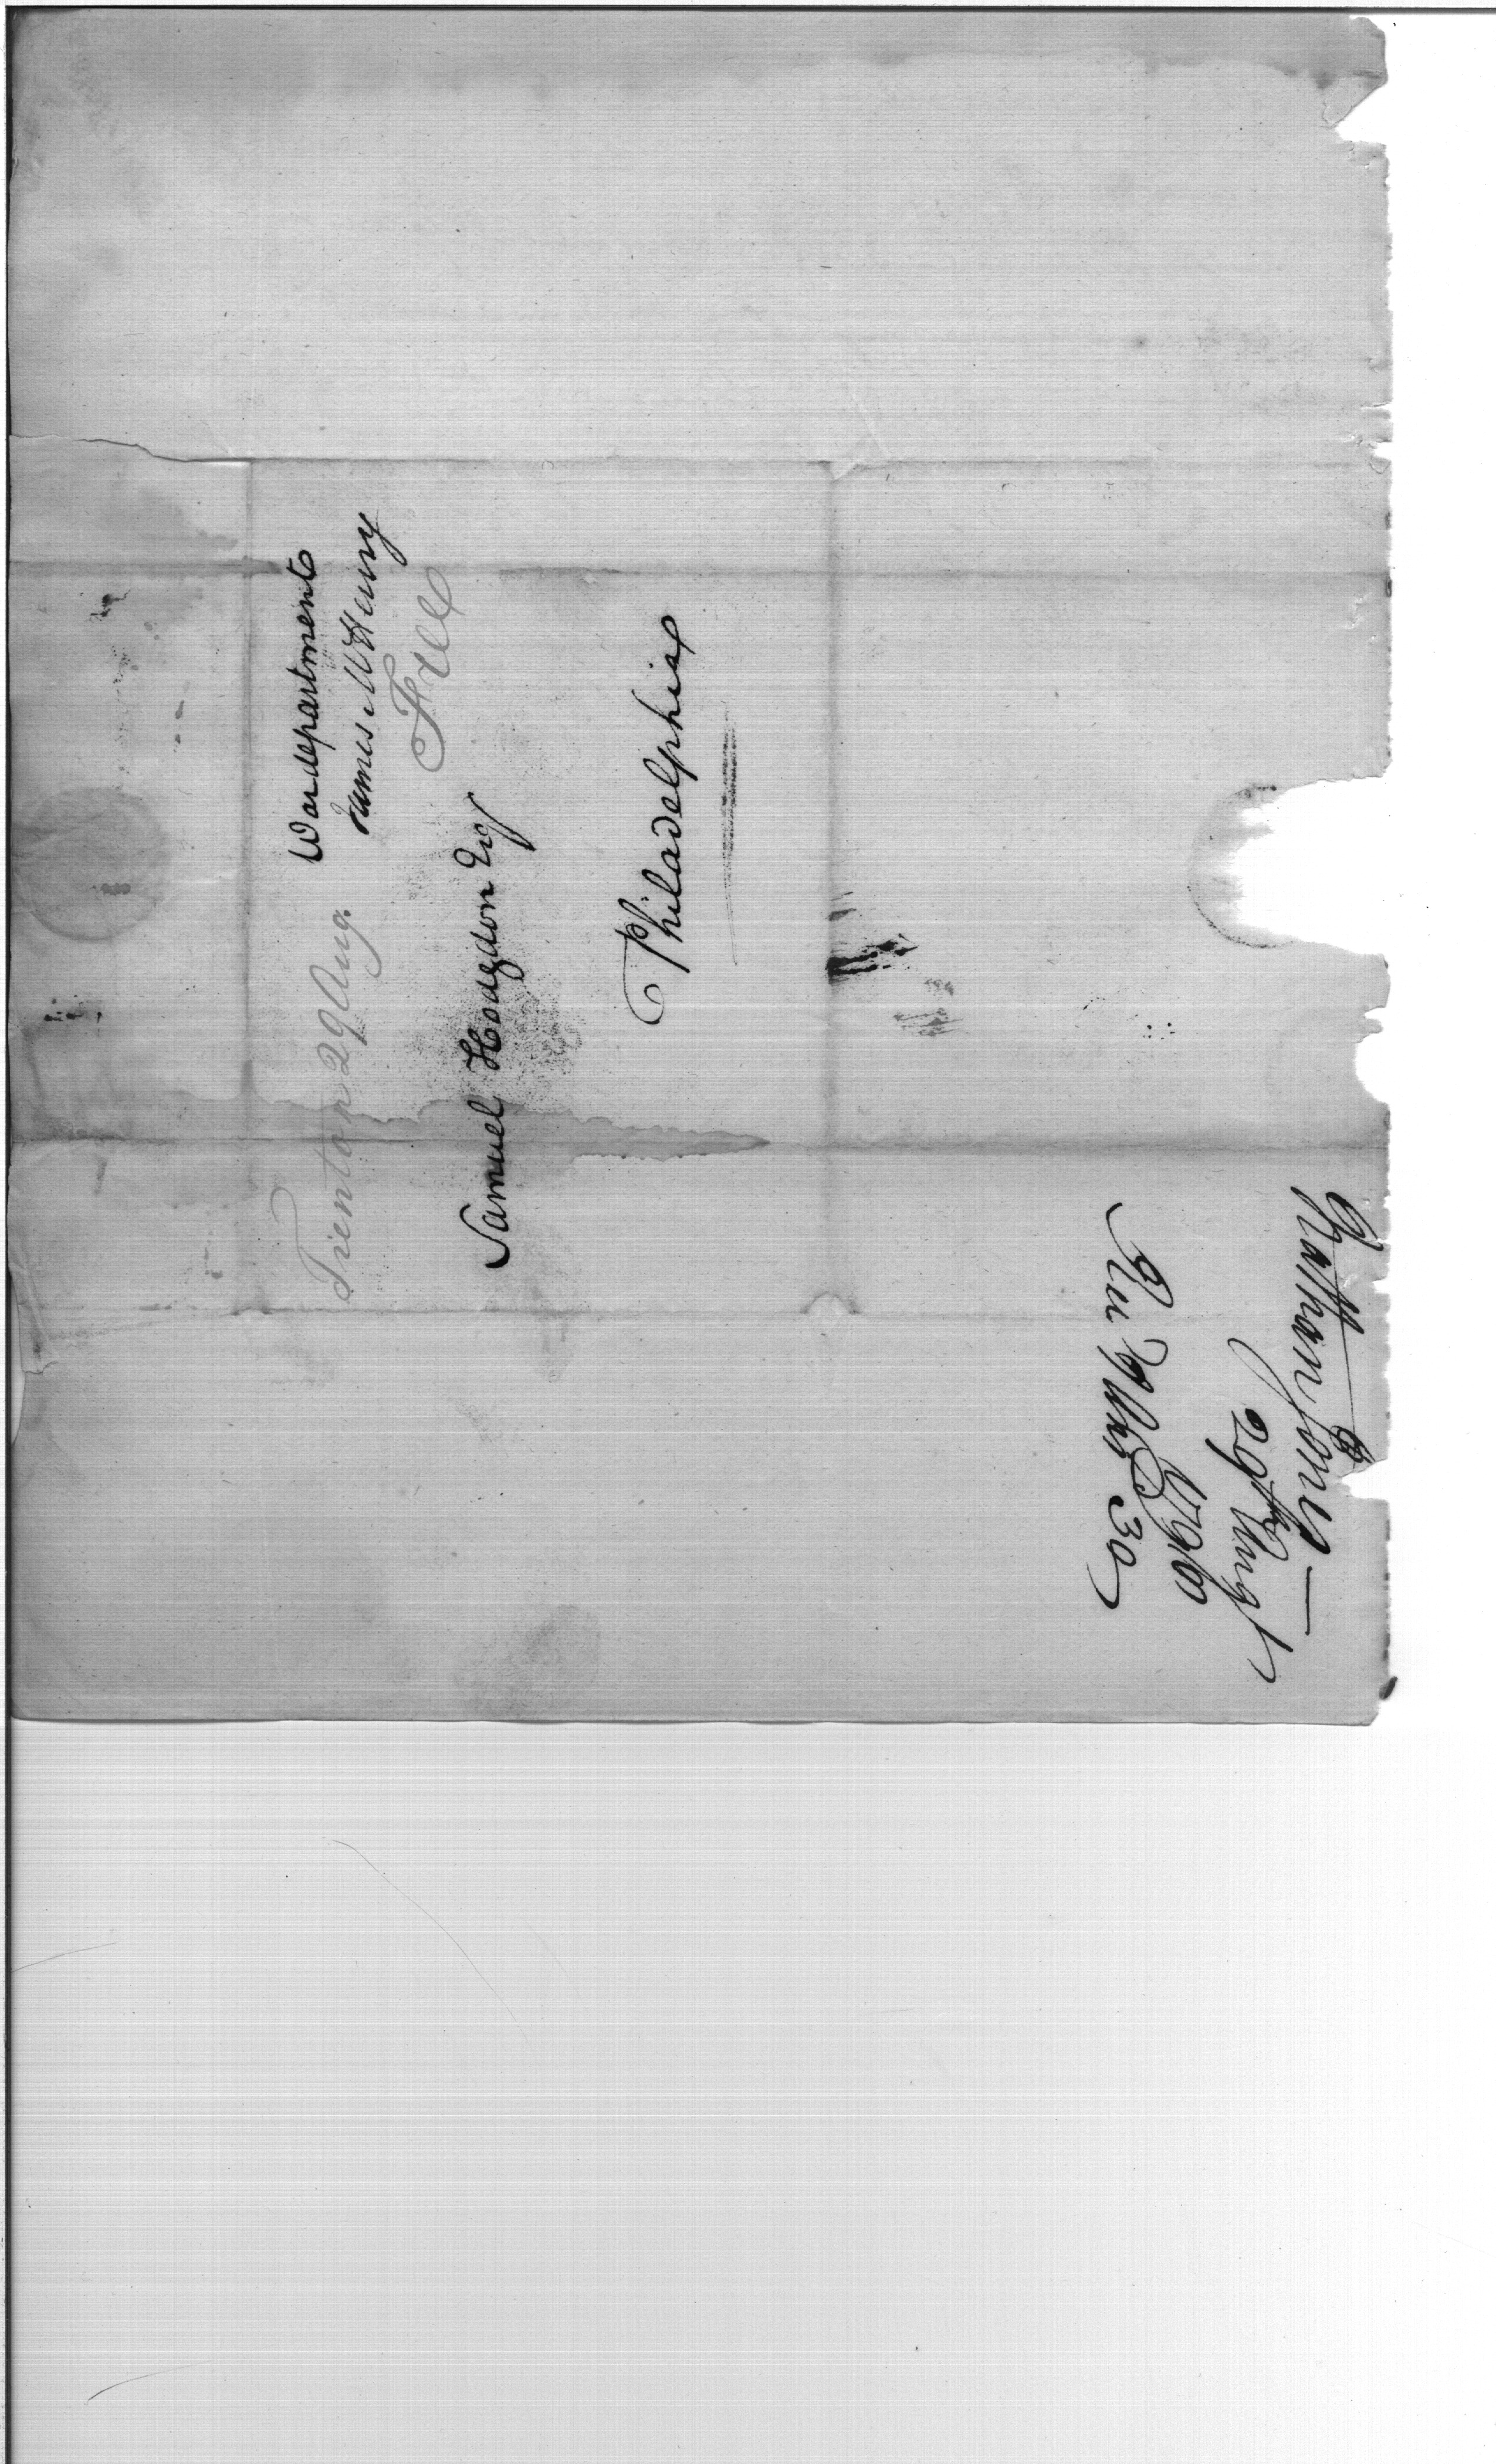 War department
James McHenry
Free
Trenton 29 Aug.
Samuel Hodgdon Esq
Philadelphia
Nathan Jones —
29th Augt
1798
30